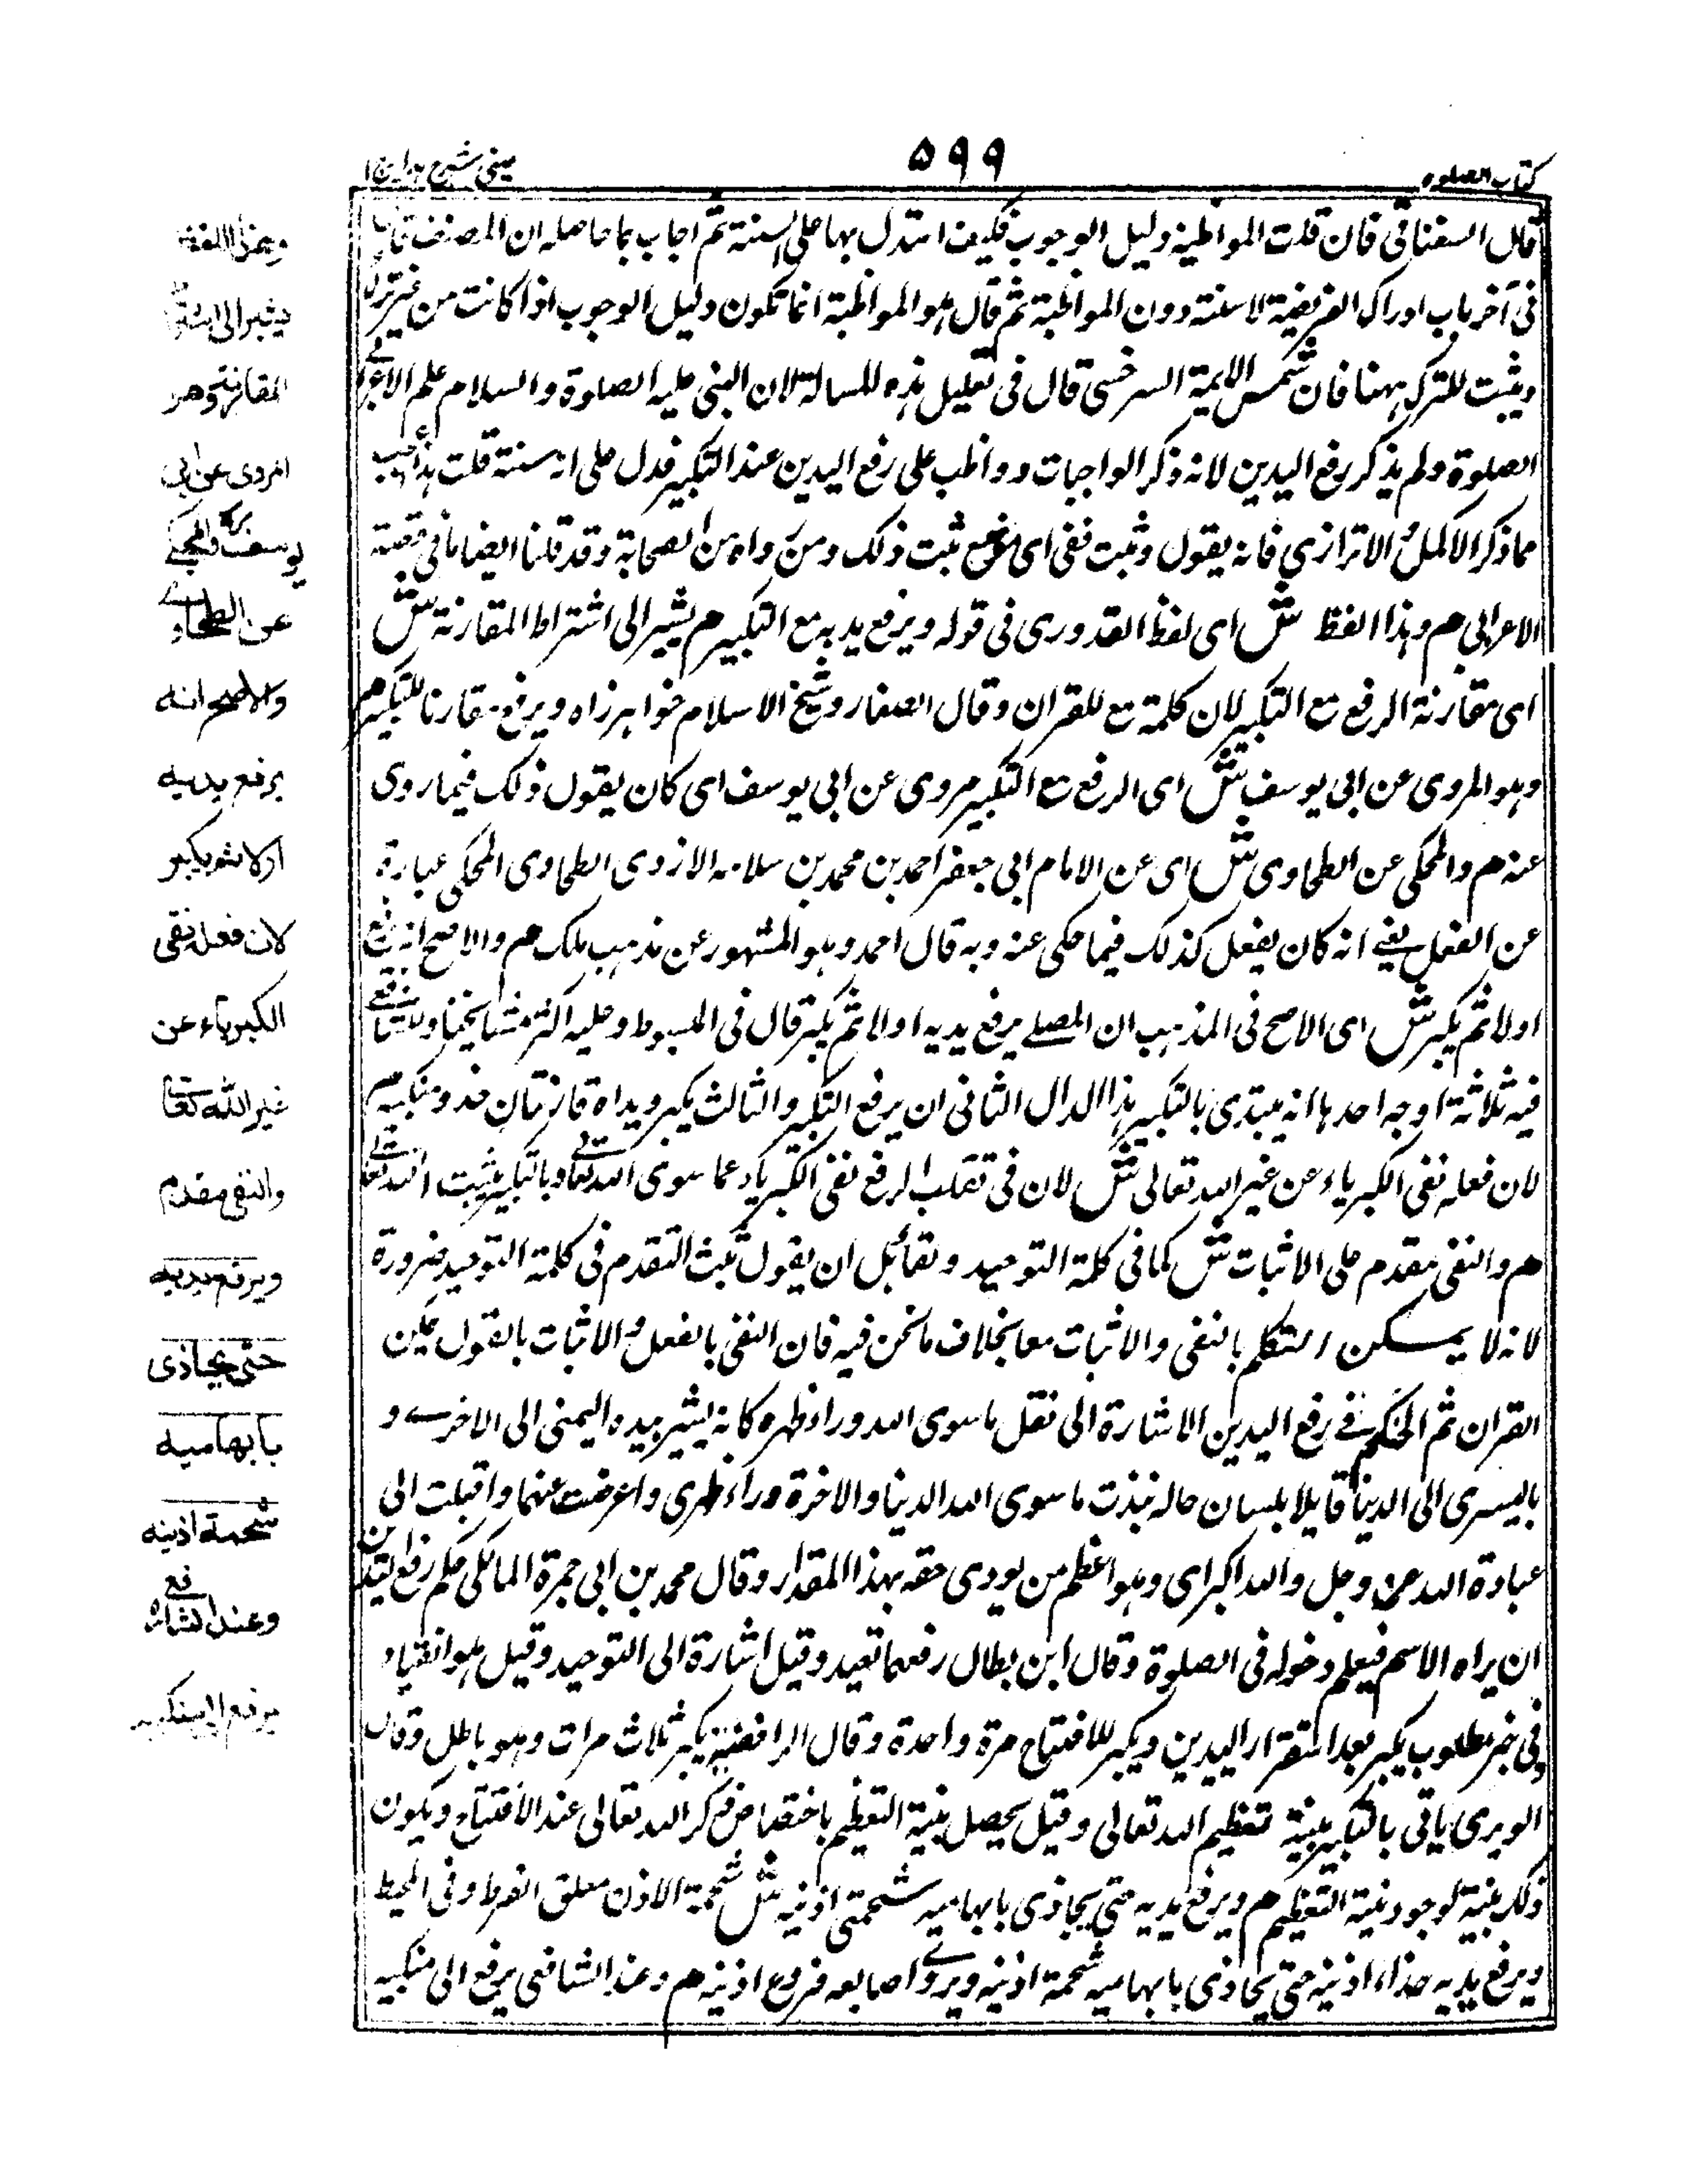 كتاب الصلوة
۵۹۹
عینی شرح هدایة ج ا
قال السغناقى فان قلت المواظبة دليل الوجوب فكيف استدل بها على السنة ثم اجاب بما حاصله ان المصنف قال
فى آخر باب ادراك الفريضة لا سنة دون المواظبة ثم قال هو المواظبة انما تكون دليل الوجوب اذا كانت من غير ترك
ويثبت للترك ههنا فان شمس الايمة السرخسى قال فى تعليل هذه المسالة لان النبى عليه الصلوة والسلام علم الاعرابى
الصلوة ولم يذكر رفع اليدين لانه ذكر الواجبات وواظب على رفع اليدين عند التكبير فدل على انه سنة قلت هذا
مما ذكر الاكمل والاترازي فانه يقول وثبت ففى اى موضع ثبت ذلك ومن رواه من الصحابة وقد قلنا ايضا ما فى قصة
الاعرابى م وهذا اللفظ ش اى لفظ القدورى فى قوله ويرفع يديه مع التكبير م يشير الى اشتراط المقارنة ش
اى مقارنة الرفع مع التكبير لان كلمة مع للقران وقال الصفار وشيخ الاسلام خواهرزاه ويرفع مقارنا للتكبير م
وهو المروى عن ابى يوسف ش اى الرفع مع التكبير مروى عن ابى يوسف اى كان يقول ذلك فيما روى
عنه م والمحكى عن الطحاوى ش اى عن الامام ابى جعفر احمد بن محمد بن سلامه الازدى الطحاوى المحكى عبارة
عن الفعل يعنے انه كان يفعل كذلك فيما حكى عنه وبه قال احمد وهو المشهور عن مذهب ملك م والاصح انه يرفع
اولا ثم يكبر ش اى الاصح فى المذهب ان المصلے يرفع يديه اولا ثم يكبر قال فى المبسوط وعليه اكثر مشايخنا وللشافعے
فيه ثلاثة اوجه احدها انه يبتدى بالتكبير الثانى ان يرفع التكبير والثالث يكبر ويداه قارتان حذو منكبيه م
لان فعله نفى الكبرياء عن غير الله تعالى ش لان فى الرفع نفى الكبرياء عما سوى الله تعالے وبالتكبير يثبت الله تعالے
م والنفى مقدم على الاثبات ش كما فى كلمة التوحيد ولقائل ان يقول ثبت التقدم فى كلمة التوحيد ضرورة
لانه لا يمكن التكلم بالنفى والاثبات معا بخلاف ما نحن فيه فان النفى بالفعل والاثبات بالقول يمكن
القران ثم الحكم فے رفع اليدين الاشارة الى نقل ما سوى الله وراء ظهره كانه يشير بيده اليمنى الى الاخرے و
باليسرى الى الدنيا قايلا بلسان حاله نبذت ما سوى الله الدنيا والاخرة وراء ظهرى واعرضت عنهما واقبلت الى
عبادة الله عز وجل والله اكبر اى وهو اعظم من يودى حقه بهذا المقدار وقال محمد بن ابى جمرة المالكى حكم رفع اليدين
ان يراه الاسم فيعلم دخوله فى الصلوة وقال ابن بطال رفعهما تعبد وقيل اشارة الى التوحيد وقيل هو انقياد
وفى خبر مطلوب يكبر بعد استقرار اليدين ويكبر للافتتاح مرة واحدة وقال الرافضية يكبر ثلاث مرات وهو باطل وقال
الوبرى ياتى بالتكبير بنية تعظيم الله تعالى وقيل يحصل بنية التعظيم باختصاص ذكر الله تعالى عند الافتتاح ويكون
ذلك بنية لوجود نية التعظيم م ويرفع يديه حتى يحاذى بابهاميه شحمتى اذنيه ش شحمة الاذن معلق القرط وفى المحيط
ويرفع يديه حذاء اذنيه حتى يحاذى بابهاميه شحمة اذنيه وبرؤس اصابعه فروع اذنيه م وعند الشافعى يرفع الى منكبيه
وهذا اللفظ
يشير الى اشتراط
المقارنة وهو
المروى عن ابى
يوسف والمحكے
عن الطحاوے
والاصح انه
يرفع يديه
اولا ثم يكبر
لان فعله نفى
الكبرياء عن
غير الله تعالے
والنفى مقدم
ويرفع يديه
حتى يحاذى
بابهاميه
شحمة اذنيه
وعند الشافعے
يرفع الى منكبيه